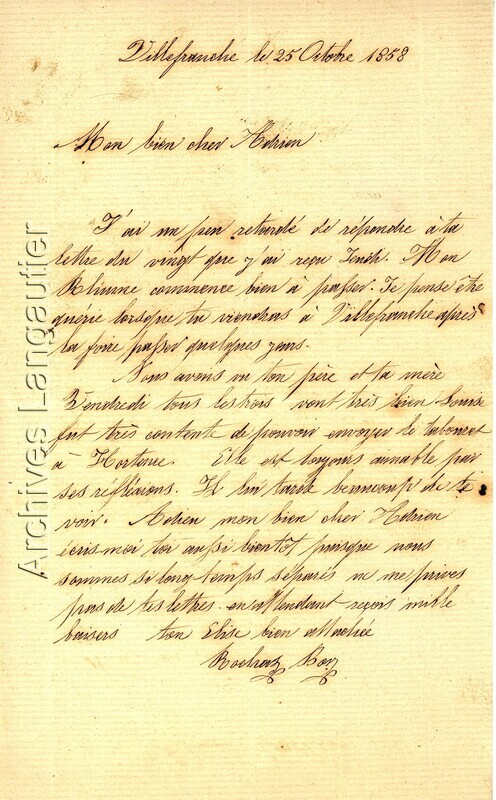 Villefranche le 25 Octobre 1858
Mon bien cher Adrien
J'ai un peu retardé de répondre à ta
lettre du vingt que j'ai reçu Mon
Rhume commence bien à passer. Je pense être
guérie lorsque tu viendras à Villefranche après
la foire passer quelques jours.
Nous avons vu ton père et ta mère
Vendredi tous les trois vont très bien Louise
fut très contente de pouvoir envoyer le tabouret
à Hortense. Elle est toujours aimable par
ses réfléxions. Il lui tarde beaucoup de te
voir. Adieu mon bien cher Adrien
écris moi toi aussi bientôt puisque nous
sommes si long temps séparés ne me prives
pas de tes lettres en attendant reçois mille
baisers ton Elise bien attachée
Archives Langautier